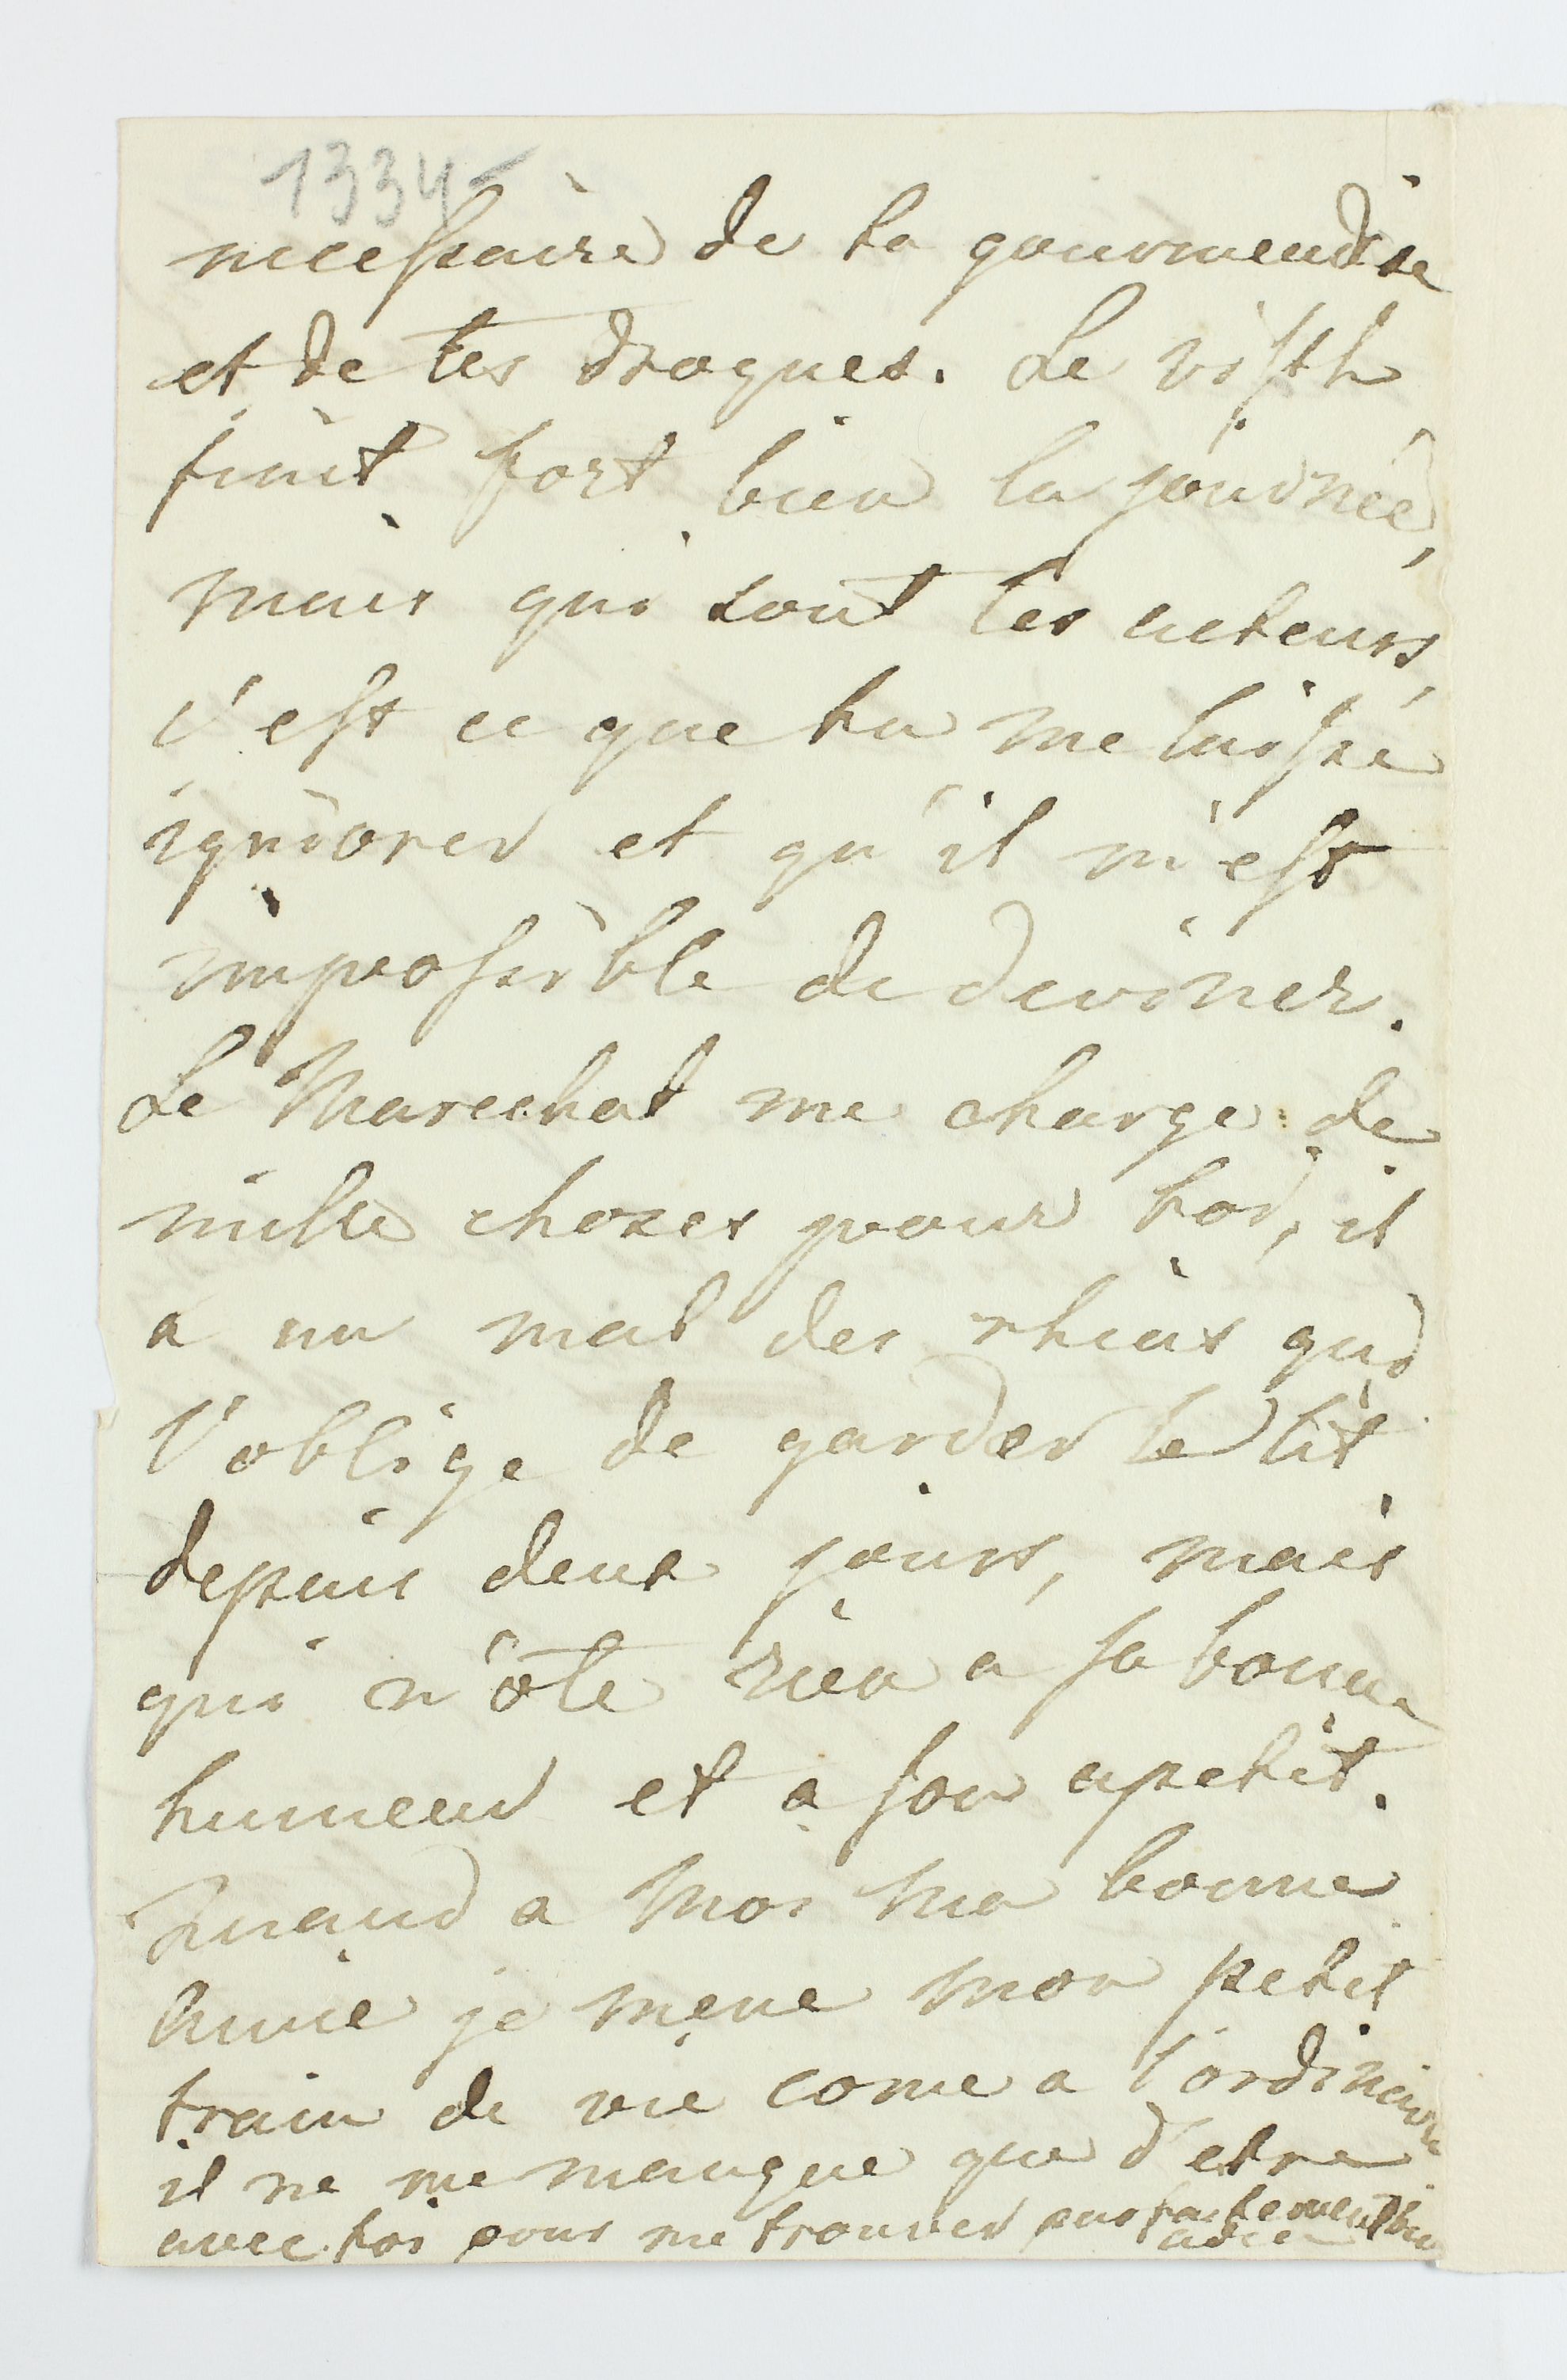 1334
necessaire de ta gourmendise
et de tes drogues. Le visth
finit fort bien la journée,
mais qui sont tes acteurs,
c'est ce que tu me laisse
ignorer et qu'il m'est
impossible de deviner.
Le Marechal me charge de
mille choses pour toi, il
a un mal des rheins qui
l'oblige de garder le lit
depuis deux jours, mais
qui n'ôte rien a sa bonne
humeur et a son apetit.
Quand a moi ma bonne
Amie je mene mon petit
train de vie come a l'ordinaire
il ne me manque que d'etre
avec toi pour me trouver parfaitement bien
adieu